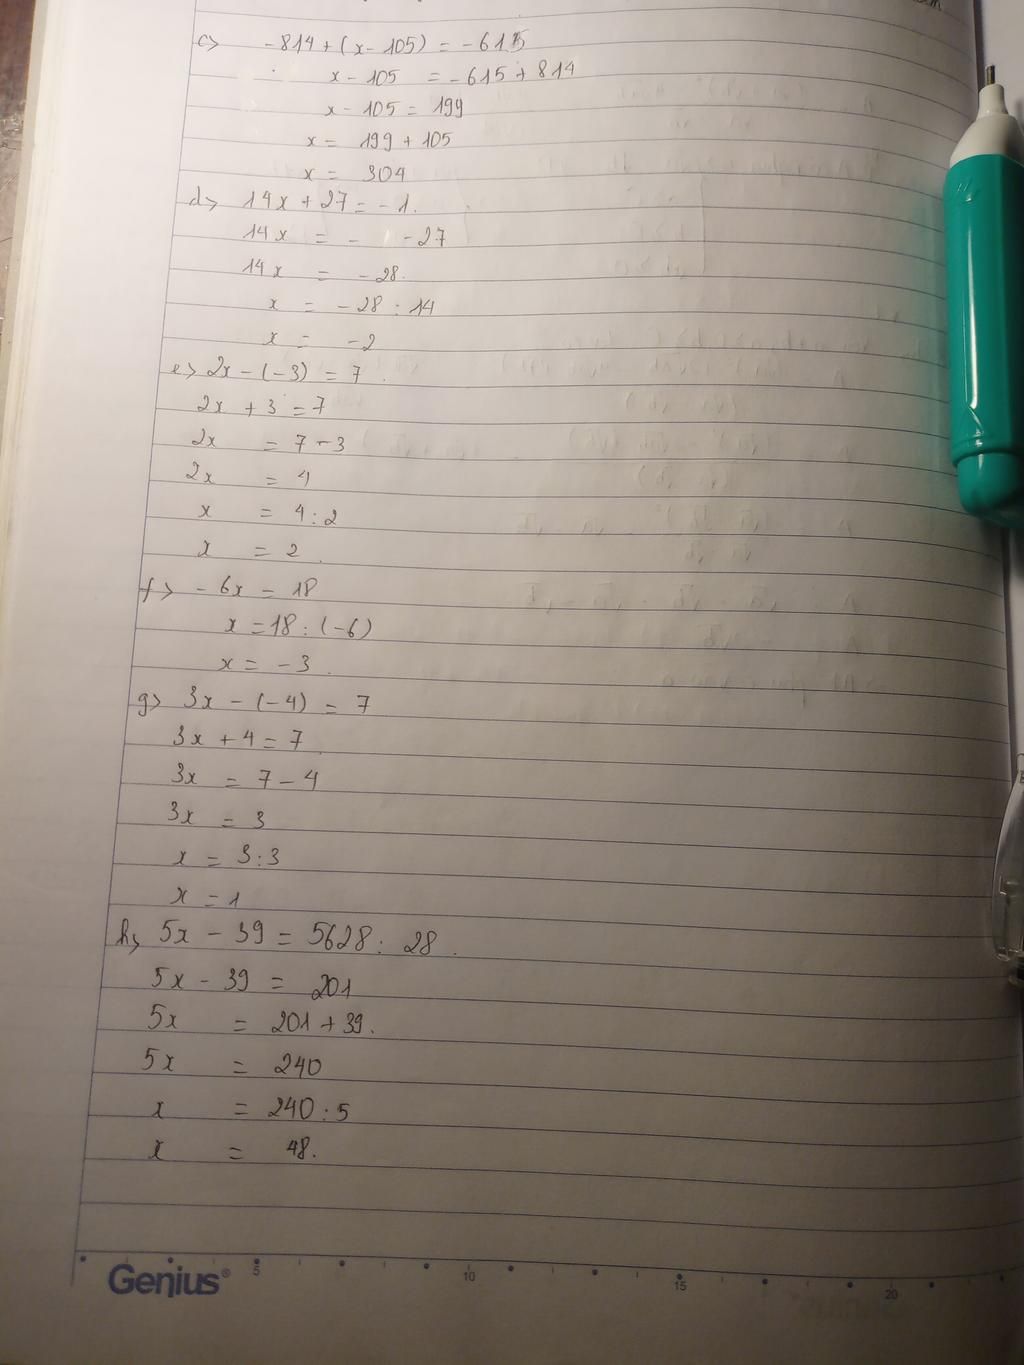 c> -814 + (x - 105) = -615
x - 105 = -615 + 814
x - 105 = 199
x = 199 + 105
x = 304
d> 14x + 27 = -1.
14x = - -27
14x = -28.
x = -28 : 14
x = -2
e> 2x - (-3) = 7.
2x + 3 = 7
2x = 7 - 3
2x = 4
x = 4 : 2
x = 2.
f> -6x = 18
x = 18 : (-6)
x = -3.
g> 3x - (-4) = 7
3x + 4 = 7.
3x = 7 - 4
3x = 3
x = 3 : 3
x = 1
h> 5x - 39 = 5628 : 28.
5x - 39 = 201
5x = 201 + 39.
5x = 240
x = 240 : 5
x = 48.
5 10 15 20
Genius®